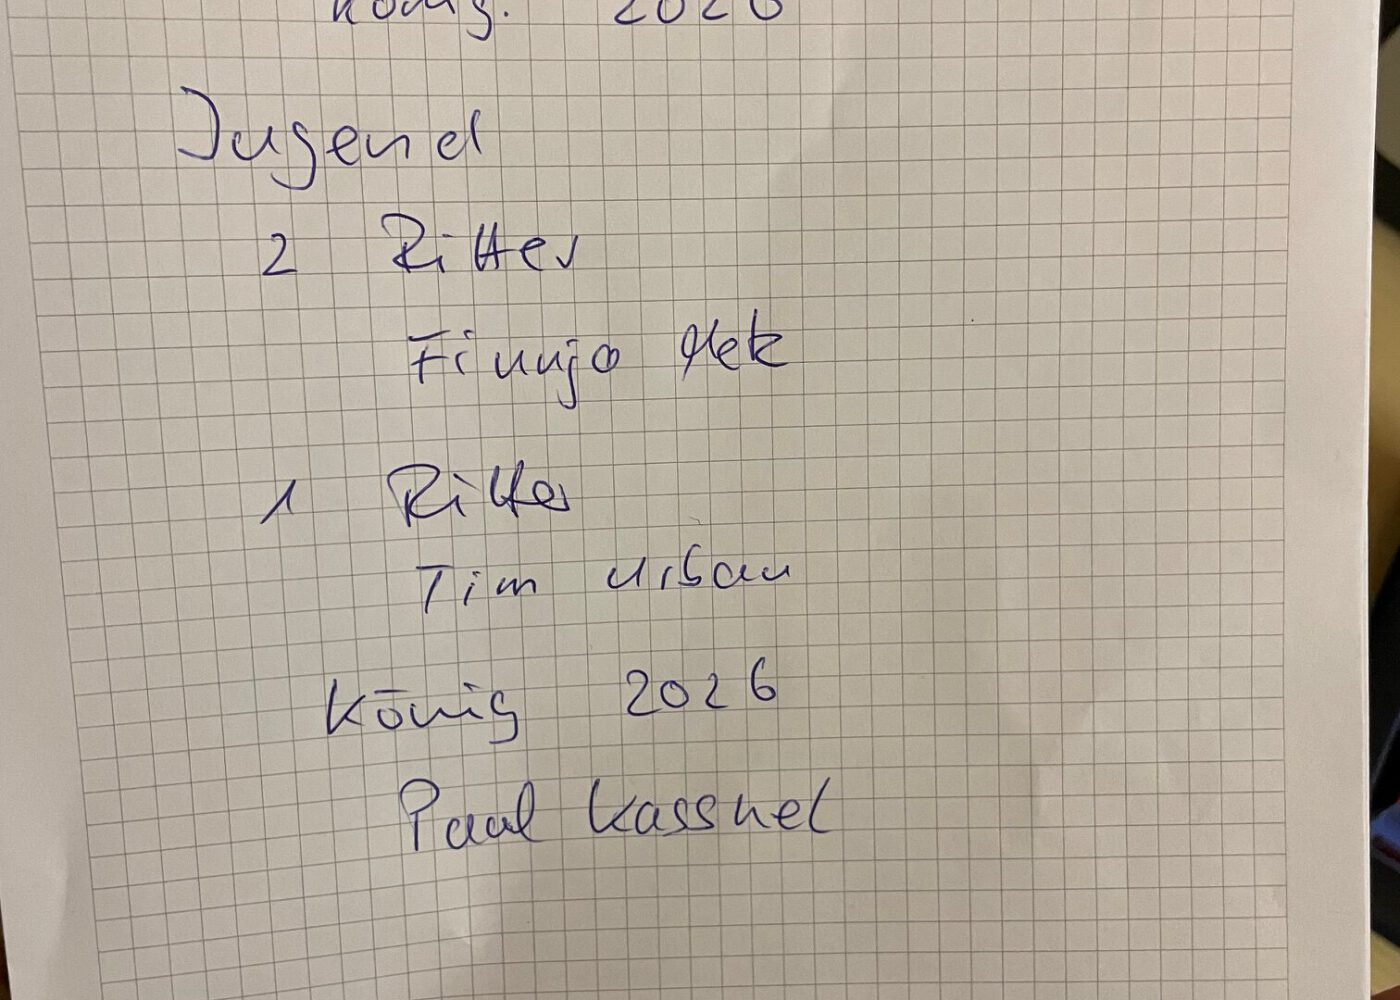 König. 2026
Jugend
2 Ritter
Finnjo
1 Ritter
Tim Urban
König 2026
Paul